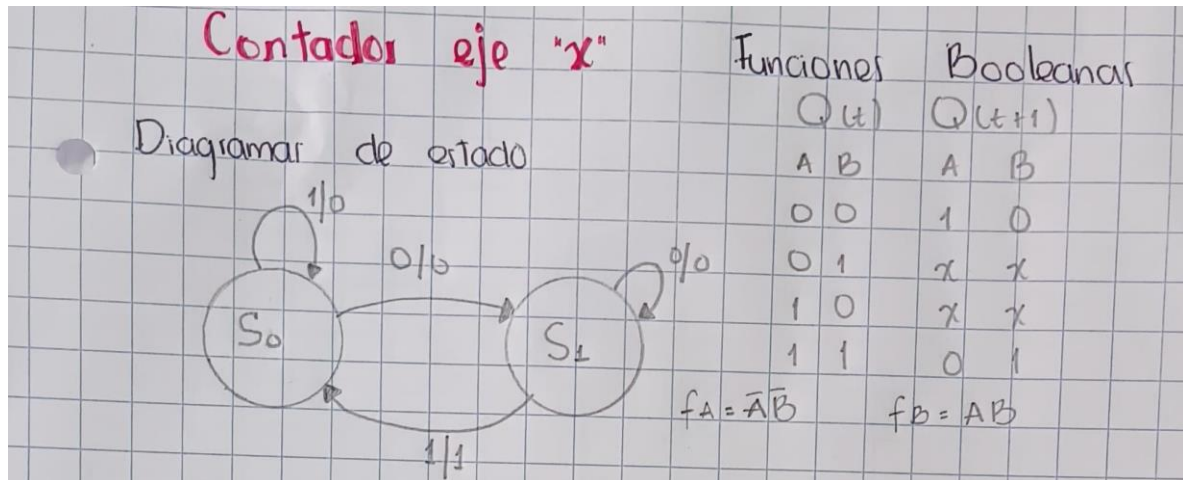 Contador eje "x"
Diagramar de estado
1/0
0/0
0/0
S0
S1
1/1
Funciones Booleanas
Q(t) Q(t+1)
A B A B
0 0 1 0
0 1 x x
1 0 x x
1 1 0 1
fA = A̅B̅ fB = AB